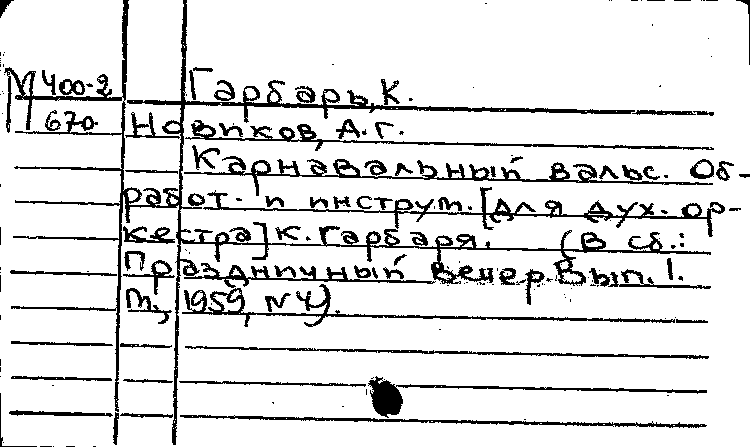 М 400-2 Гарбарь, К.
670 Новиков, А.Г.
Карнавальный вальс. Об-
работ. и инструм. [для дух. ор-
кестра] К. Гарбаря. (В сб.:
Праздничный вечер Вып. 1.
М., 1959, №4).